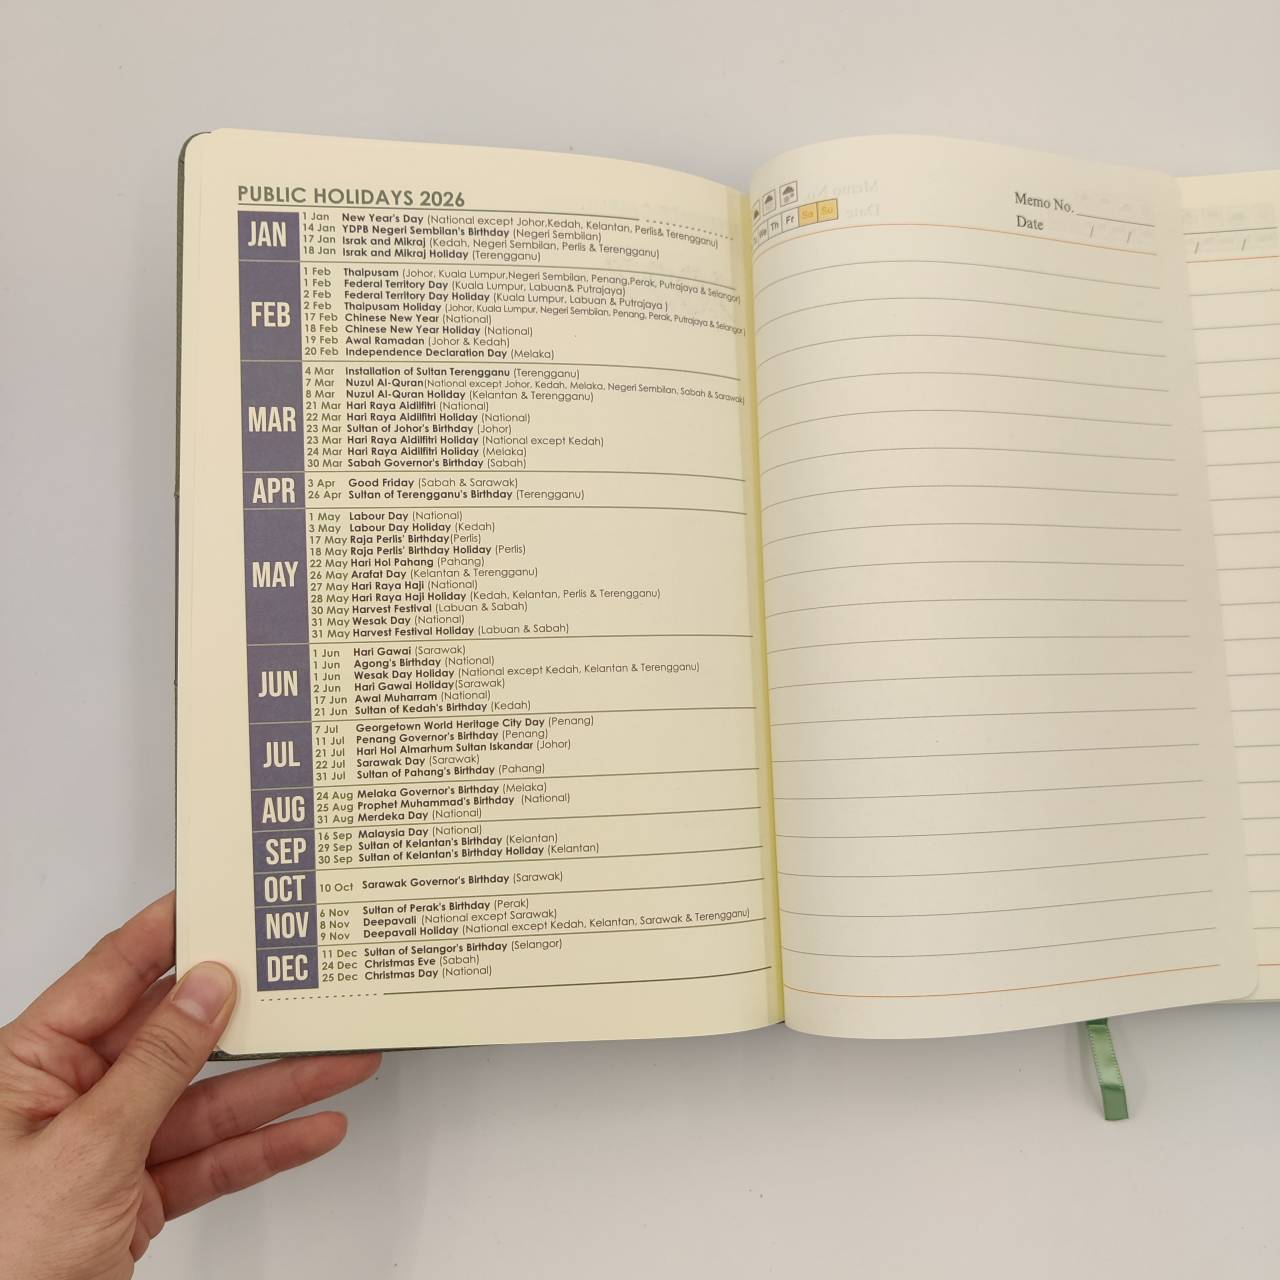 PUBLIC HOLIDAYS 2026
JAN
1 Jan New Year's Day (National except Johor,Kedah, Kelantan, Perlis& Terengganu)
14 Jan YDPB Negeri Sembilan's Birthday (Negeri Sembilan)
17 Jan Israk and Mikraj (Kedah, Negeri Sembilan, Perlis & Terengganu)
18 Jan Israk and Mikraj Holiday (Terengganu)
FEB
1 Feb Thaipusam (Johor, Kuala Lumpur,Negeri Sembilan, Penang,Perak, Putrajaya & Selangor)
1 Feb Federal Territory Day (Kuala Lumpur, Labuan& Putrajaya)
2 Feb Federal Territory Day Holiday (Kuala Lumpur, Labuan & Putrajaya )
2 Feb Thaipusam Holiday (Johor, Kuala Lumpur, Negeri Sembilan, Penang, Perak, Putrajaya & Selangor)
17 Feb Chinese New Year (National)
18 Feb Chinese New Year Holiday (National)
19 Feb Awal Ramadan (Johor & Kedah)
20 Feb Independence Declaration Day (Melaka)
MAR
4 Mar Installation of Sultan Terengganu (Terengganu)
7 Mar Nuzul Al-Quran(National except Johor, Kedah, Melaka, Negeri Sembilan, Sabah & Sarawak)
8 Mar Nuzul Al-Quran Holiday (Kelantan & Terengganu)
21 Mar Hari Raya Aidilfitri (National)
22 Mar Hari Raya Aidilfitri Holiday (National)
23 Mar Sultan of Johor's Birthday (Johor)
23 Mar Hari Raya Aidilfitri Holiday (National except Kedah)
24 Mar Hari Raya Aidilfitri Holiday (Melaka)
30 Mar Sabah Governor's Birthday (Sabah)
APR
3 Apr Good Friday (Sabah & Sarawak)
26 Apr Sultan of Terengganu's Birthday (Terengganu)
MAY
1 May Labour Day (National)
3 May Labour Day Holiday (Kedah)
17 May Raja Perlis' Birthday(Perlis)
18 May Raja Perlis' Birthday Holiday (Perlis)
22 May Hari Hol Pahang (Pahang)
26 May Arafat Day (Kelantan & Terengganu)
27 May Hari Raya Haji (National)
28 May Hari Raya Haji Holiday (Kedah, Kelantan, Perlis & Terengganu)
30 May Harvest Festival (Labuan & Sabah)
31 May Wesak Day (National)
31 May Harvest Festival Holiday (Labuan & Sabah)
JUN
1 Jun Hari Gawai (Sarawak)
1 Jun Agong's Birthday (National)
1 Jun Wesak Day Holiday (National except Kedah, Kelantan & Terengganu)
2 Jun Hari Gawai Holiday(Sarawak)
17 Jun Awal Muharram (National)
21 Jun Sultan of Kedah's Birthday (Kedah)
JUL
7 Jul Georgetown World Heritage City Day (Penang)
11 Jul Penang Governor's Birthday (Penang)
21 Jul Hari Hol Almarhum Sultan Iskandar (Johor)
22 Jul Sarawak Day (Sarawak)
31 Jul Sultan of Pahang's Birthday (Pahang)
AUG
24 Aug Melaka Governor's Birthday (Melaka)
25 Aug Prophet Muhammad's Birthday (National)
31 Aug Merdeka Day (National)
SEP
16 Sep Malaysia Day (National)
29 Sep Sultan of Kelantan's Birthday (Kelantan)
30 Sep Sultan of Kelantan's Birthday Holiday (Kelantan)
OCT
10 Oct Sarawak Governor's Birthday (Sarawak)
NOV
6 Nov Sultan of Perak's Birthday (Perak)
8 Nov Deepavali (National except Sarawak)
9 Nov Deepavali Holiday (National except Kedah, Kelantan, Sarawak & Terengganu)
DEC
11 Dec Sultan of Selangor's Birthday (Selangor)
24 Dec Christmas Eve (Sabah)
25 Dec Christmas Day (National)
We Th Fr Sa Su
Memo No.
Date / /